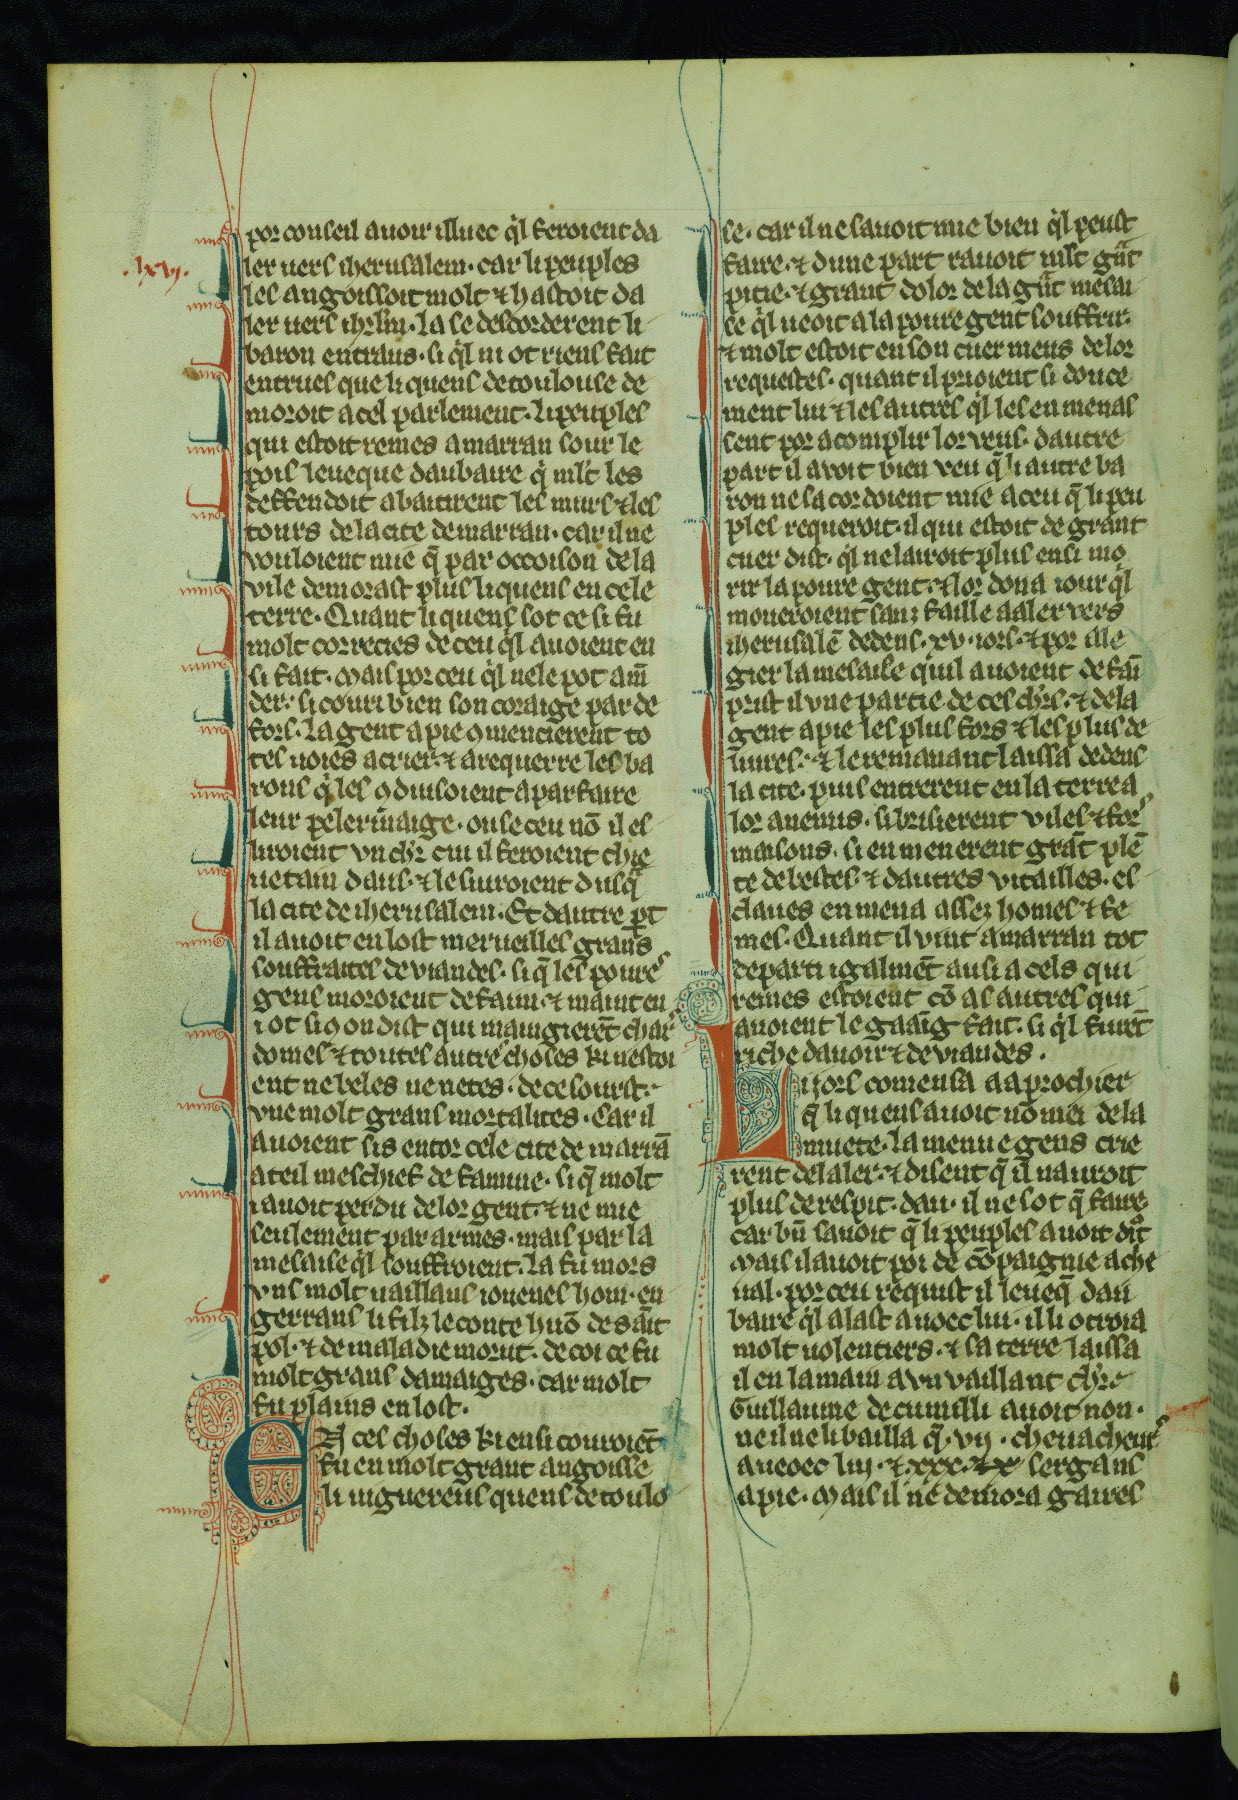 por conseil auoir illuec q̉l feroient da
.lxvj.
ler uers iherusalem · car li peuples
les angoissoit molt ⁊ hastoit da
ler uers ihrl̄m · la se descorderent li
baron entraus · si q̉l ni ot riens fait
entrues que li quens de toulouse de
moroit a cel parlement · li peuples
qui estoit remes a marran sour le
pois leueque daubaire q̉ ml̄t les
deffendoit abatirent les murs ⁊ les
tours de la cite de marran · car il ne
vouloient mie q̄ par occoison de la
vile demorast plus li quens en cele
terre · Quant li quens sot ce si fu
molt correcies de ceu q̉l auoient en
si fait · mais por ceu q̉l nele pot am̄
der · si couri bien son coraige par de
fors · la gent a pie ꝯmencierent to
tes uoies a crier · ⁊ a requerre les ba
rons q̉les ꝯduisoient a parfaire
leur pelerinaige · ou se ceu nō il es
liroient vn chr̄ cui il feroient chie
uetain daus · ⁊ le siuroient dusq̄
la cite de iherusalem · Et dautre ꝑt
il auoit en lost merueilles grans
souffraites de viandes · si q̄ les poures
gens moroient de faim · ⁊ maint en
i ot si ꝯ on dist qui mangierēt char
domes ⁊ toutes autres choses ki nestoi
ent ne beles ne netes · de ce sourst
vne molt grans mortalites · Car il
auoient sis entor cele cite de marrā
a teil meschief de famine · si q̄ molt
i auoit perdu de lor gent · ⁊ ne mie
seulement par armes · mais par la
mesaise q̉l souffroient · la fu mors
vns molt uaillans iouenes hom · en
gerrans li filz le conte huō de saīt
pol · ⁊ de maladie morut · de coi ce fu
molt grans damaiges · car molt
fu plains en lost ·
En ces choses ki ensi couroiēt
fu en molt grant angoisse
li uiguereus quens de toulo
se · car il ne sauoit mie bien q̉l peust
faire · ⁊ dune part rauoit ml̄t grāt
pitie · ⁊ grant dolor de la grāt mesai
se q̉l ueoit a la poure gent souffrir ·
⁊ molt estoit en son cuer meus de lor
requestes · quant il prioient si douce
ment lui ⁊ les autres q̉l les en menas
sent por acomplir lor veus · dautre
part il avoit bien veu q̄ li autre ba
ron ne sacordoient mie a ceu q̄ li peu
ples requeroit · il qui estoit de grant
cuer dist · q̉l ne lairoit plus ensi mo
rir la poure gent · ⁊ lor dona iour q̉l
moueroient sanz faille a aler vers
iherusalē dedens · xv · iors · ⁊ por ale
gier la mesaise quil auoient de faī
prist il vne partie de ces chr̄s · ⁊ de la
gent a pie les plus fors ⁊ les plus de
liures · ⁊ le remanant laissa dedens
la cite · puis entrerent en la terre a
lor anemis · si brisierent viles ⁊ fors
maisons · si en menerent grāt plē
te de bestes · ⁊ dautres vitailles · es
claues en mena assez homes ⁊ fe
mes · Quant il vint a marran tot
departi igalmēt ausi a cels qui
remes estoient cō as autres qui
auoient le gaaīg fait · si q̉l furēt
riche dauoir ⁊ de viandes ·
Li iors comensa a aprochier
q̄ li quens auoit nomei de la
muete · la menue gens crie
rent del aler · ⁊ disent q̄ il nauroit
plus de respit · dau · il ne sot q̄ faire
car bn̄ sauoit q̄ li peuples auoit dit
mais il auoit poi de cōpaignie a che
ual · por ceu requist il leueq̄ dau
baire q̉l alast auoec lui · il li otroia
molt uolentiers · ⁊ sa terre laissa
il en la main a vn vaillant chr̄e
Guillaume de cumilli auoit non ·
ne il ne li bailla q̄ · vij · cheuacheurs
aueoec lui · ⁊ xxx · sergans
a pie · Mais il ne demora gaires